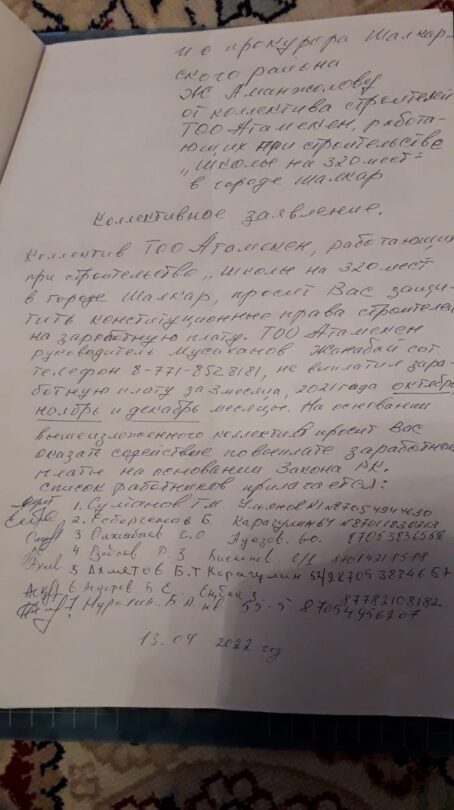 и.о прокурора Шалкар-
ского района
Ж Аманжолову
от коллектива строителей
ТОО Атамекен, работа-
ющих при строительстве
„Школы на 320 мест"
в городе Шалкар
Коллективное заявление.
Коллектив ТОО Атамекен, работающих
при строительство „Школы на 320 мест
в городе Шалкар, просит Вас защи-
тить конституционные права строителей
на заработную плату. ТОО Атамекен
руководитель Мусиханов Жанабай сот
телефон 8-771-8528181, не выплатил зара-
ботную плату за 3 месяца, 2021 года октябрь
ноябрь и декабрь месяцы. На основании
вышеизложенного коллектив просит Вас
оказать содействие по выплате заработной
платы на основании Закона РК.
Список работников прилагается:
1. Султанов Т М Ульянов №1
2. Есберсенов Б Карагулин 64
3 С.О. Ауезов. 60. 87053836558
4. Р.З
5 Ахметов Б.Т Карагулин 52/2 87053834657
6 Б С. 87782108182
7. Нуралин. Б. А. 55-5 87054956207
13.04 2022 год